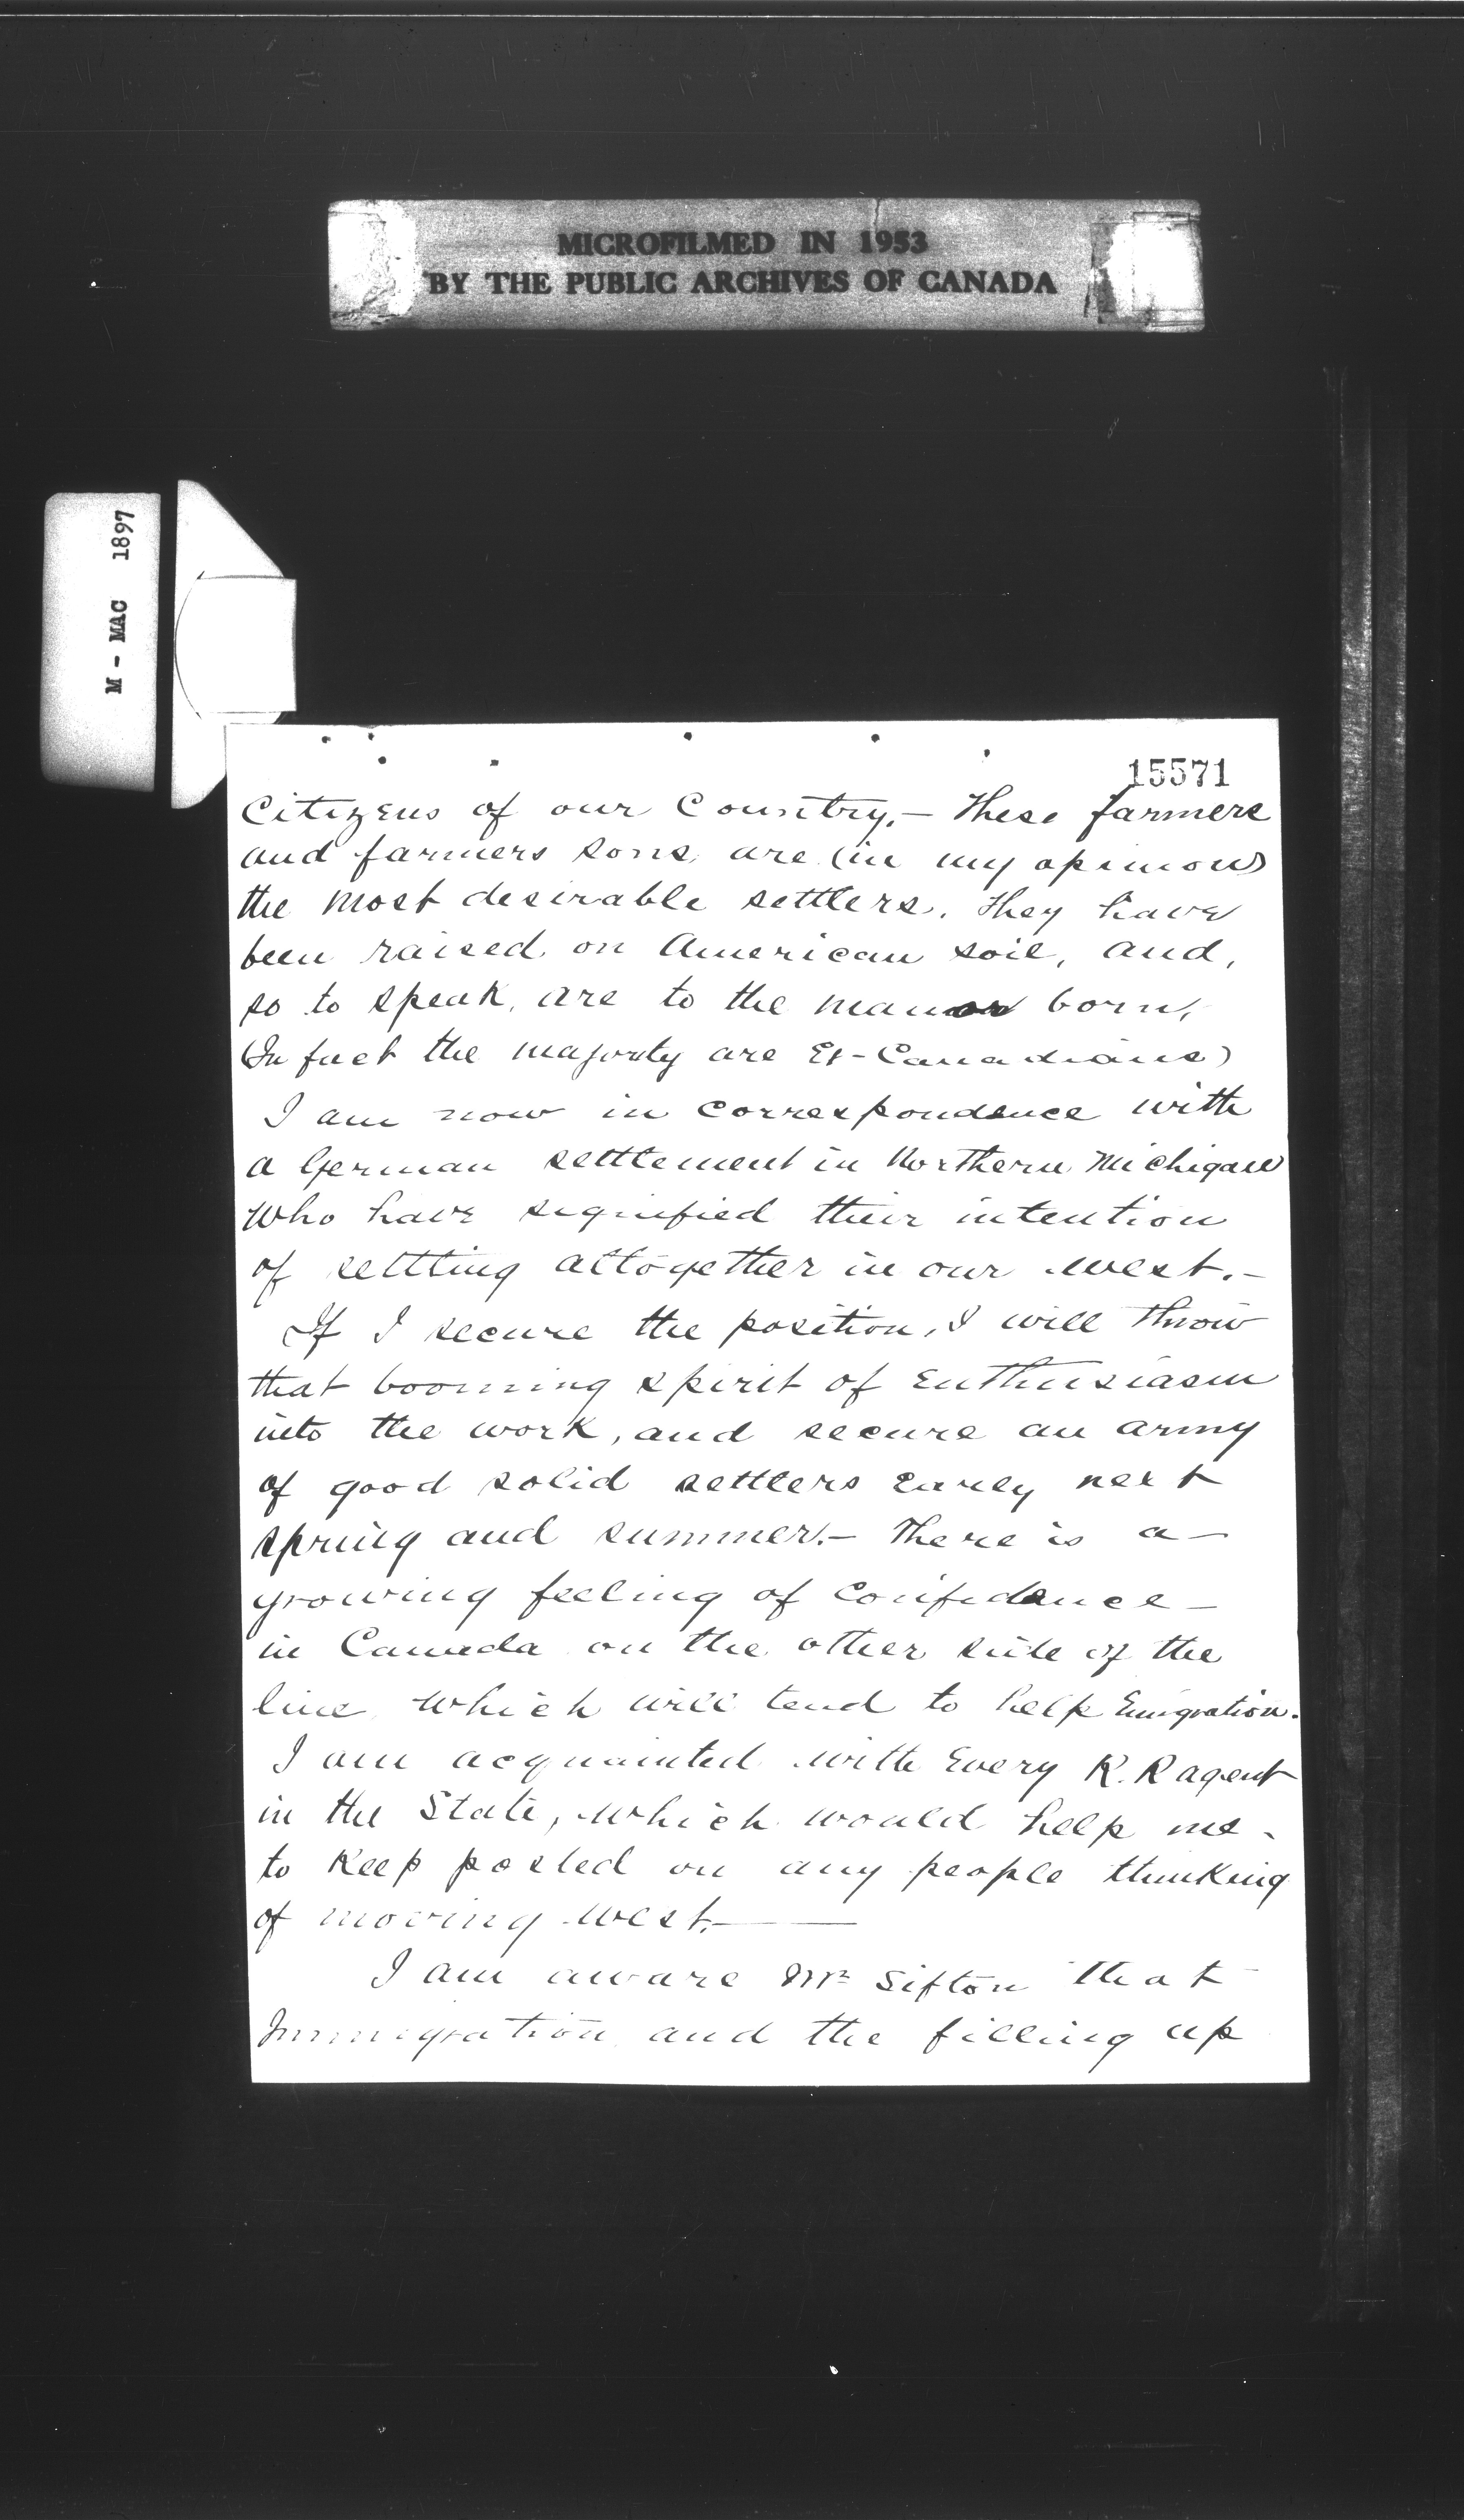 MICROFILMED IN 1953
BY THE PUBLIC ARCHIVES OF CANADA
M - MAC 1897
15571
Citizens of our Country.— These farmers
and farmers sons are (in my opinion)
the most desirable settlers. They have
been raised on American soil, and,
so to speak, are to the manor born,
(In fact the majority are Ex-Canadians)
I am now in correspondence with
a German settlement in Northern Michigan
who have signified their intention
of settling altogether in our west.—
If I secure the position, I will throw
that booming spirit of Enthusiasm
into the work, and secure an army
of good solid settlers early next
spring and summer.— There is a—
growing feeling of confidence—
in Canada on the other side of the
line which will tend to help Emigration.
I am acquainted with Every R. R agent
in the State, which would help me-
to Keep posted on any people thinking
of moving west.—
I am aware Mr Sifton that
Immigration and the filling up